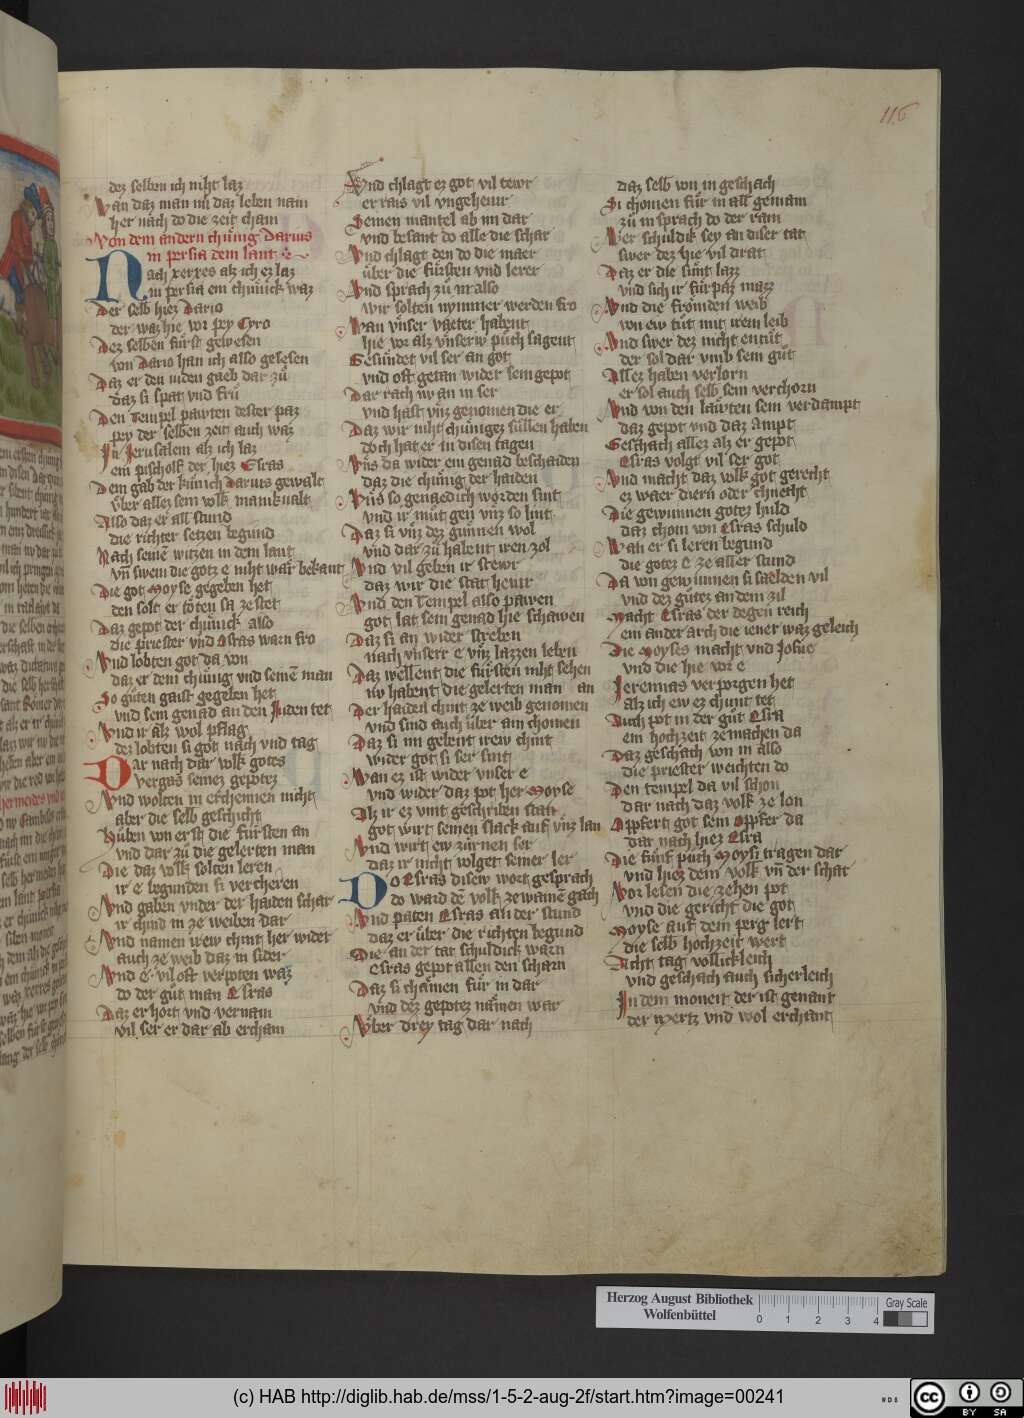 116
dez selben ich niht laz
Wan daz man im daz leben nam
her nach do die zeit cham
Von dem andern chünig Darius
in persia dem lant
Nach xerxes als ich ez laz
in persia ein chünick waz
Der selb hiez Dario
der waz hie vor pey Cyro
Dez selben fürst gewesen
von Dario han ich also gelesen
Daz er den iuden gaeb dar zü
daz si spat vnd frü
Den Tempel pawten dester paz
pey der selben zeit auch waz
In Jerusalem als ich laz
ein pischolf der hiez Esras
Dem gab der künich Darius gewalt
über allez sein volk manikualt
Also daz er all stund
die richter setzen begund
Nach seinē witzen in dem lant
vn̄ swem die gotz e niht war bekant
Die got Moyse gegeben het
den solt er töten sa ze stet
Daz gepot der chünick also
die priester vnd Esras warn fro
Vnd lobten got da von
daz er dem chünig vnd seinē man
So güten gaist gegeben het
vnd sein genad an den Juden tet
Vnd ir alz wol pflag
dez lobten si got nach vnd tag
Dar nach daz volk gotes
vergas seinez gepotez
Vnd wolten in erchennen nicht
aber die selb geschicht
Hüben von erst die fürsten an
vnd dar zü die gelerten man
Die daz volk solten leren
ir e begunden si vercheren
Vnd gaben vnder der haiden schar
ir chind in ze weiben dar
Vnd namen irew chint her wider
auch ze weib daz in sider
Vnd e vil oft verpoten waz
do der güt man Esras
Daz erhort vnd vernam
vil ser er dar ab ercham
Vnd chlagt ez got vil tewr
er rais vil vngeheur
Seinen mantel ab im dar
vnd besant do alle die schar
Vnd chlagt den do die maer
über die fürsten vnd lerer
Vnd sprach zü in also
wir solten nymmer werden fro
Wan vnser väeter habent
hie vor alz vnserw püch sagent
Gesündet vil ser an got
vnd oft getan wider sein gepot
Dar rach nv an in ser
vnd hast vnz genomen die er
Daz wir niht chünigez süllen haben
doch hat er in disen tagen
Vns da wider ein genad beschaiden
daz die chünig der haiden
Vns so genaedich worden sint
vnd ir müt gen vnz so lint
Daz si vnz dez günnen wol
vnd dar zü habent iren zol
Vnd vil geben ir stewr
daz wir die stat hewr
Vnd den Tempel also pawen
got lat sein genad hie schawen
Daz si an wider streben
nach vnserr e vnz lazzen lebn
Daz wellent die fürsten niht sehen
nv habent die gelerten man an
Der haiden chint ze weib genomen
vnd sind auch über ain chomen
Daz si im gelent irew chint
wider got si ser sint
Wan ez ist wider vnser e
vnd wider daz pot her Moyse
Alz ir ez vint geschriben stan
got wirt seinen slack auf vnz lan
Vnd wirt ew zürnen ser
daz ir nicht volget seiner ler
Do Esras disew wort gesprach
do ward dē volk ze wainē gach
Vnd paten Esras an der stund
daz er über die richten begund
Die an der tat schuldick warn
Esras gepot allen den scharn
Daz si chämen für in dar
vnd dez gepotez nämen war
Vber drey tag dar nach
daz selb von in geschach
Si chomen für in all gemain
zü in sprach do der rain
Wer schuldik sey an diser tat
swer dez hie vil drat
Daz er die sünt lazz
vnd sich ir für paz mazz
Vnd die frömden weib
von ew tüt mit irem leib
Vnd swer dez nicht entüt
der sol dar vmb sein güt
Allez haben verlorn
er sol auch selb sein verchorn
Vnd von den läwten sein verdampt
daz gepot vnd daz ampt
Geschach allez alz er gepot
Esras volgt vil ser got
Vnd macht daz volk got gerecht
ez waer diern oder chnecht
Die gewunnen gotez huld
daz chom von Esras schuld
Wan er si leren begund
die gotez e ze aller stund
Da von gewunnen si saelden vil
vnd dez gütez an dem zil
Macht Esras der degen reich
ein ander arch die iener waz geleich
Die Moyses macht vnd Josue
vnd die hie vor e
Jeremias verporgen het
alz ich ew ez chunt tet
Auch pot in der güt Esra
ein hochzeit ze machen da
Daz geschach von in also
die priester weichten do
Den tempel da vil schon
dar nach daz volk ze lon
Oppfert got sein oppfer da
dar nach hiez Esra
Die fünf püch Moysi tragen dar
vnd hiez dem volk vn̄ der schar
Vor lesen die zehen pot
vnd die gericht die got
Moyse auf dem perg lert
die selb hochzeit wert
Acht tag vollicleich
vnd geschach auch sicherleich
In dem moneit der ist genant
der Mertz vnd wol erchant
Herzog August Bibliothek
Wolfenbüttel
0 1 2 3 4
Gray Scale
(c) HAB http://diglib.hab.de/mss/1-5-2-aug-2f/start.htm?image=00241
WDB
CC BY SA